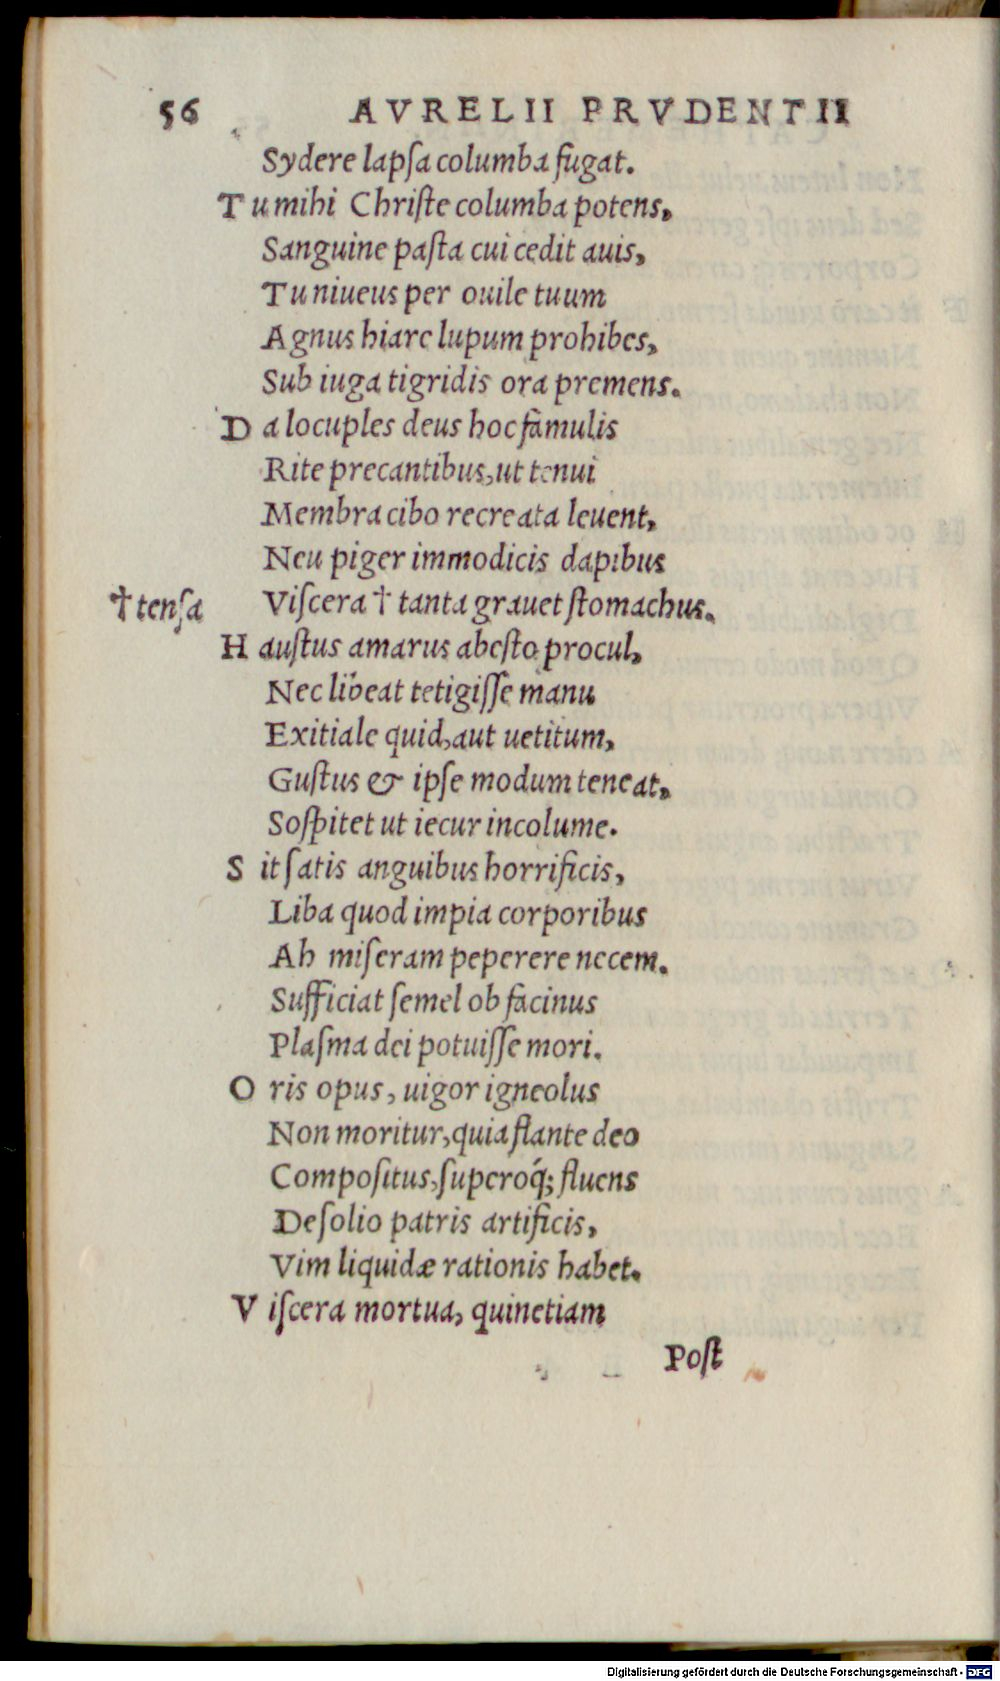 56 AVRELII PRVDENTII
Sydere lapſa columba fugat.
Tu mihi Chriſte columba potens,
Sanguine paſta cui cedit auis,
Tu niueus per ouile tuum
Agnus hiare lupum prohibes,
Sub iuga tigridis ora premens.
Da locuples deus hoc famulis
Rite precantibus, ut tenui
Membra cibo recreata leuent,
Neu piger immodicis dapibus
†tenſa Viſcera † tanta grauet ſtomachus.
Hauſtus amarus abeſto procul,
Nec libeat tetigiſſe manu
Exitiale quid, aut uetitum,
Guſtus & ipſe modum teneat,
Soſpitet ut iecur incolume.
Sit ſatis anguibus horrificis,
Liba quod impia corporibus
Ah miſeram peperere necem.
Sufficiat ſemel ob facinus
Plaſma dei potuiſſe mori.
Oris opus, uigor igneolus
Non moritur, quia flante deo
Compoſitus, ſuperoq́; fluens
De ſolio patris artificis,
Vim liquidæ rationis habet.
Viſcera mortua, quinetiam
Poſt
Digitalisierung gefördert durch die Deutsche Forschungsgemeinschaft - DFG